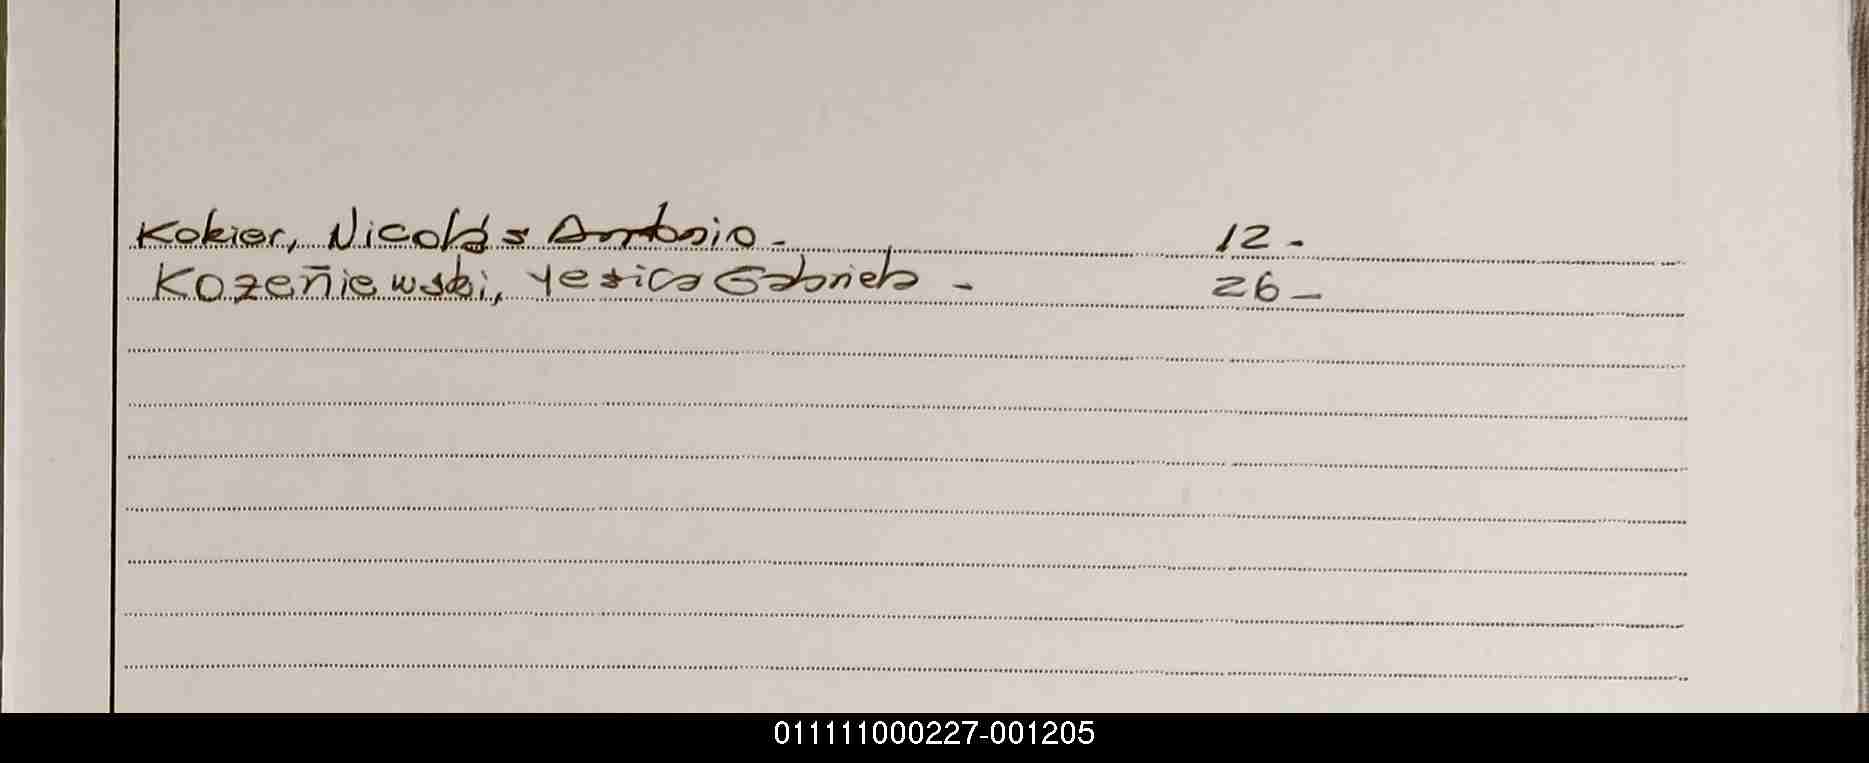 Kokier, Nicolás Antonio - 12 -
Kozeñiewski, Yesica Gabriela - 26 -
011111000227-001205